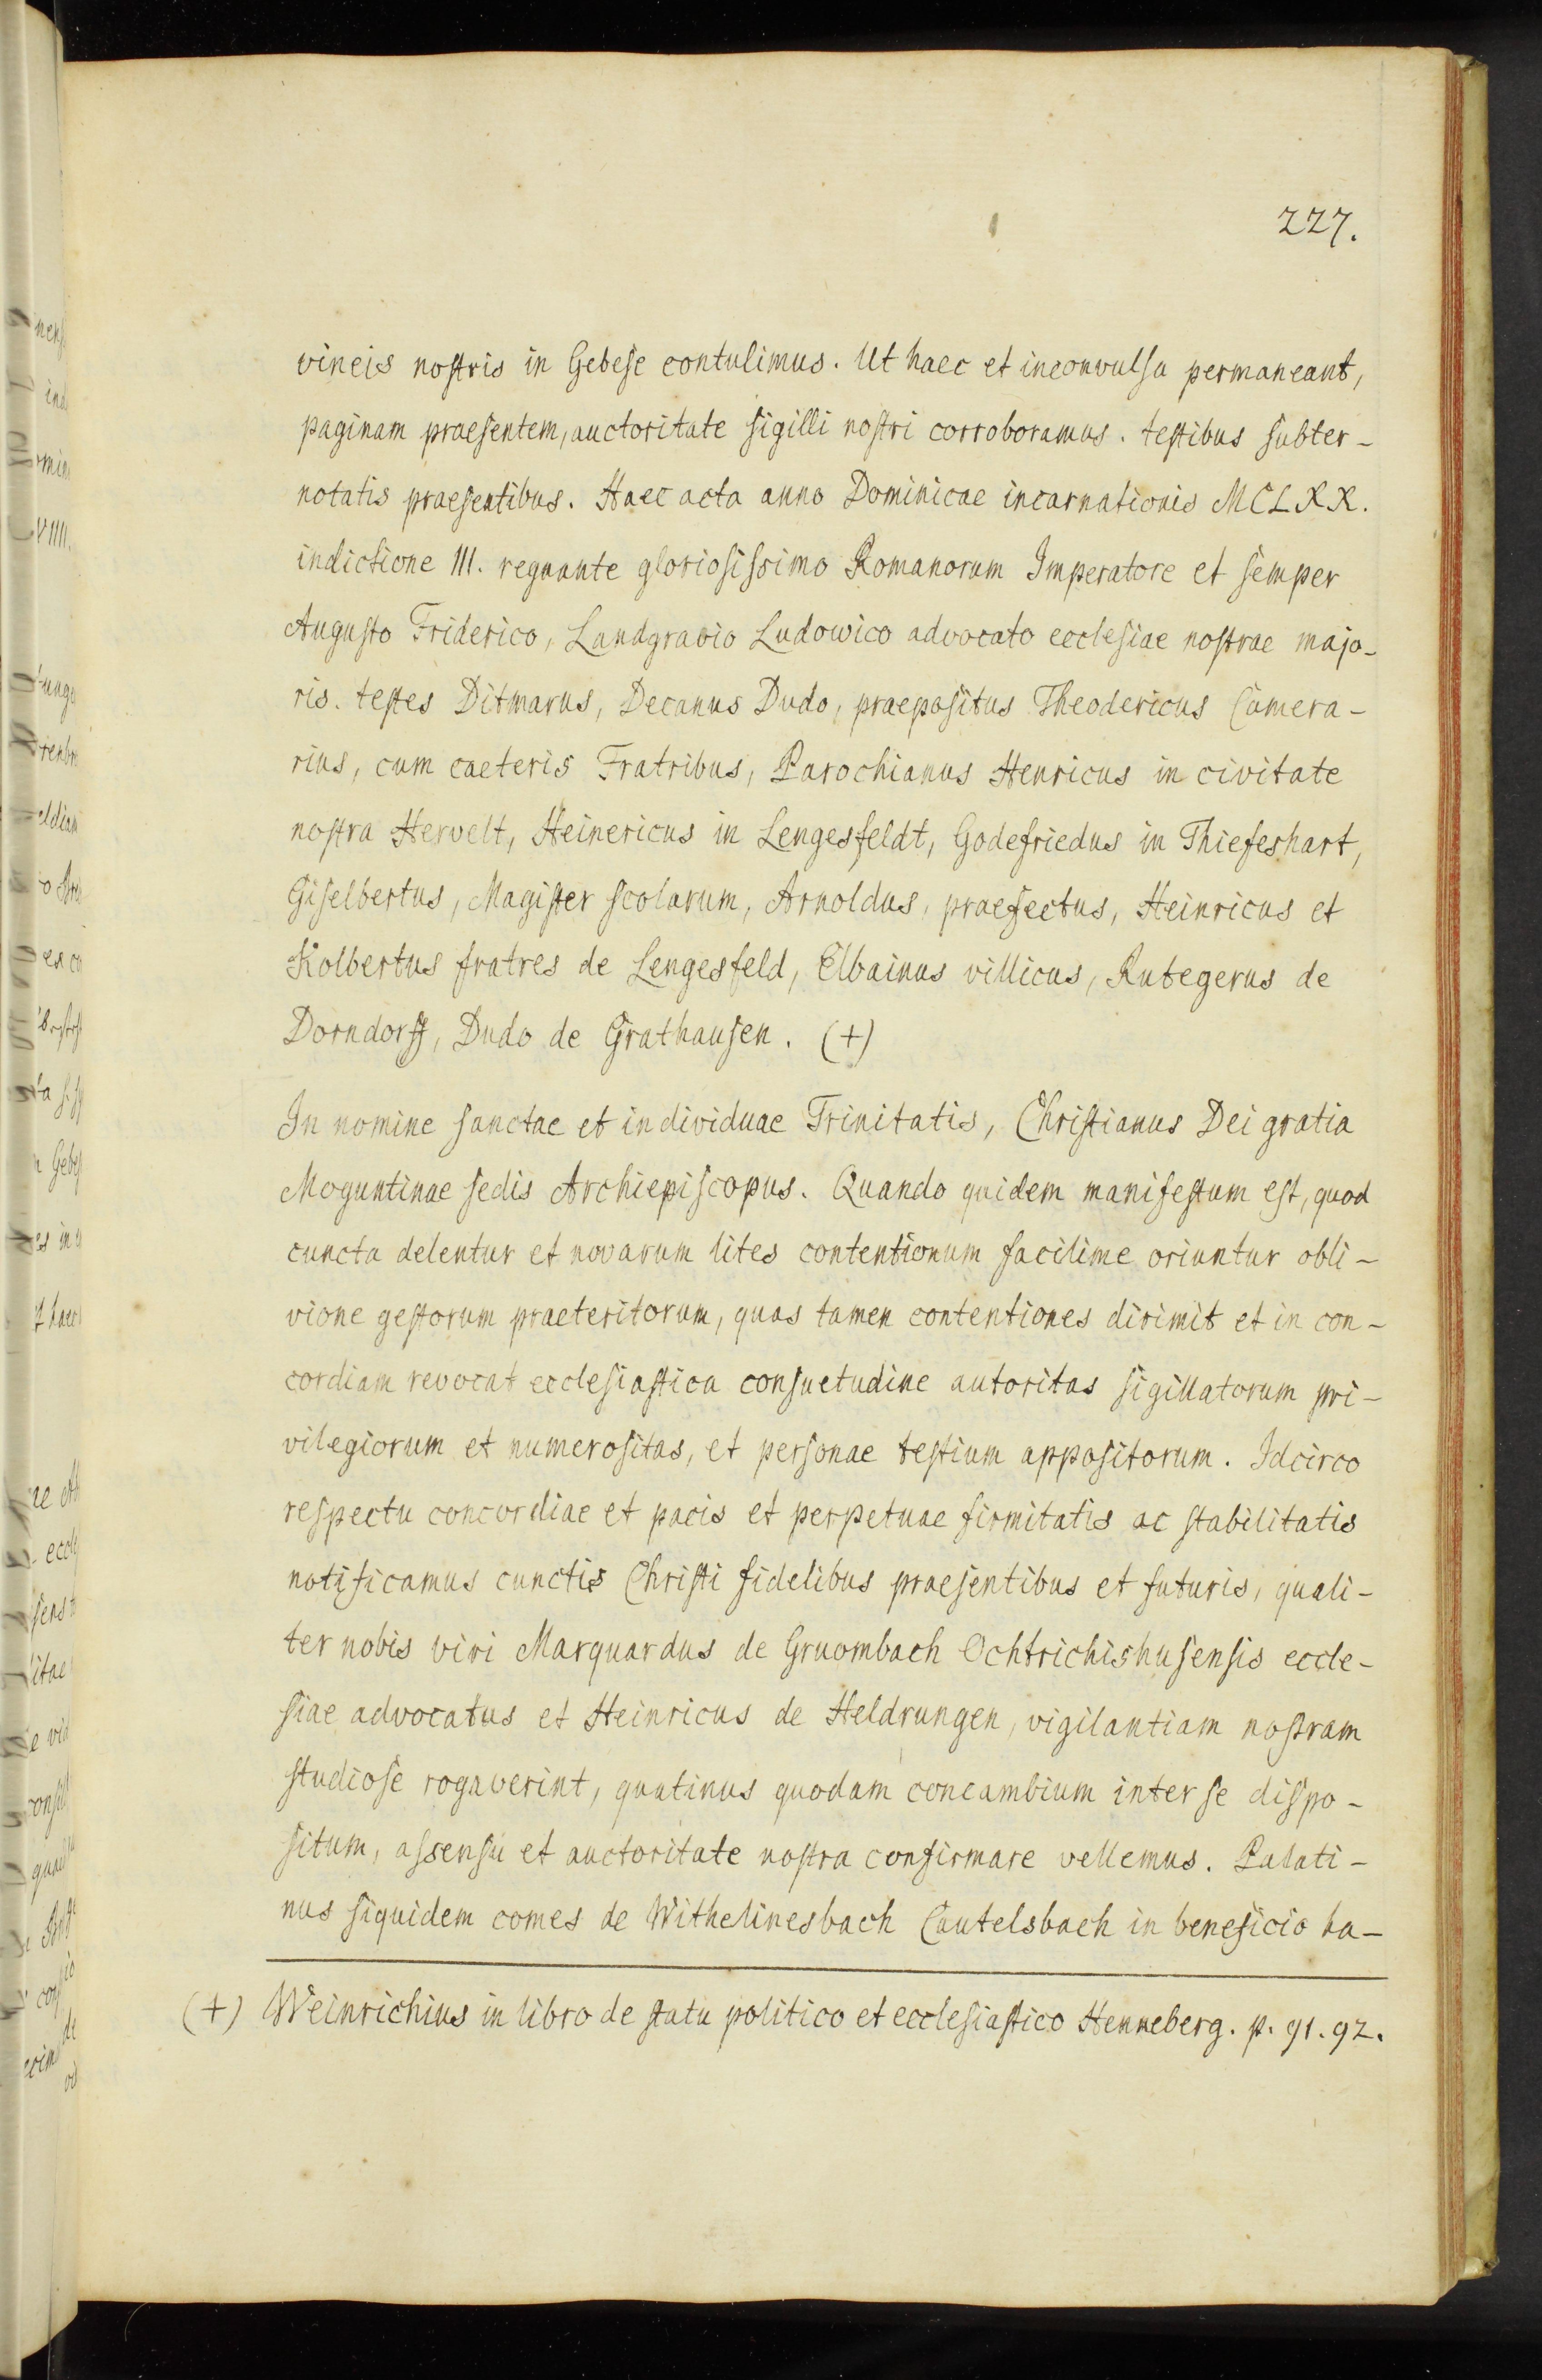 227.
vineis nostris in Gebese contulimus. Ut haec et inconvulsa permaneant,
paginam praesentem, auctoritate sigilli nostri corroboramus. testibus subter-
notatis praesentibus. Haec acta anno Dominicae incarnationis MCLXX.
indictione III. regnante gloriosissimo Romanorum Imperatore et semper
Augusto Friderico, Landgravio Ludowico advocato ecclesiae nostrae majo-
ris. testes Ditmarus, Decanus Dudo, praepositus Theodericus Camera-
rius, cum caeteris Fratribus, Parochianus Henricus in civitate
nostra Hervelt, Heinericus in Lengesfeldt, Godefriedus in Thiefeshart,
Giselbertus, Magister scolarum, Arnoldus, praefectus, Heinricus et
Kolbertus fratres de Lengesfeld, Elbainus villicus, Rutegerus de
Dorndorff, Dudo de Grathausen. (+)
In nomine sanctae et individuae Trinitatis, Christianus Dei gratia
Moguntinae sedis Archiepiscopus. Quando quidem manifestum est, quod
cuncta delentur et novarum lites contentionum facilime oriuntur obli-
vione gestorum praeteritorum, quas tamen contentiones dirimit et in con-
cordiam revocat ecclesiastica consuetudine autoritas sigillatorum pri-
vilegiorum et numerositas, et personae testium appositorum. Idcirco
respectu concordiae et pacis et perpetuae firmitatis ac stabilitatis
notificamus cunctis Christi fidelibus praesentibus et futuris, quali-
ter nobis viri Marquardus de Gruombach Ochtrichishusensis eccle-
siae advocatus et Heinricus de Heldrungen, vigilantiam nostram
studiose rogaverint, quatinus quodam concambium inter se dispo-
situm, assensu et auctoritate nostra confirmare vellemus. Palati-
nus siquidem comes de Withelinesbach Cautelsbach in beneficio ha-
(+) Weinrichius in libro de statu politico et ecclesiastico Henneberg. p. 91. 92.